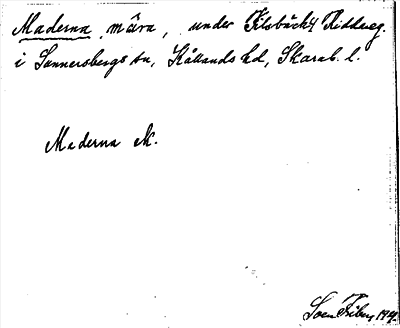 Maderna, måra, under Filsbäck 4 Rittveg.
i Sunnersbergs sn, Kållands hd, Skarab. l.
Maderna M.
Sven Friberg 1921.